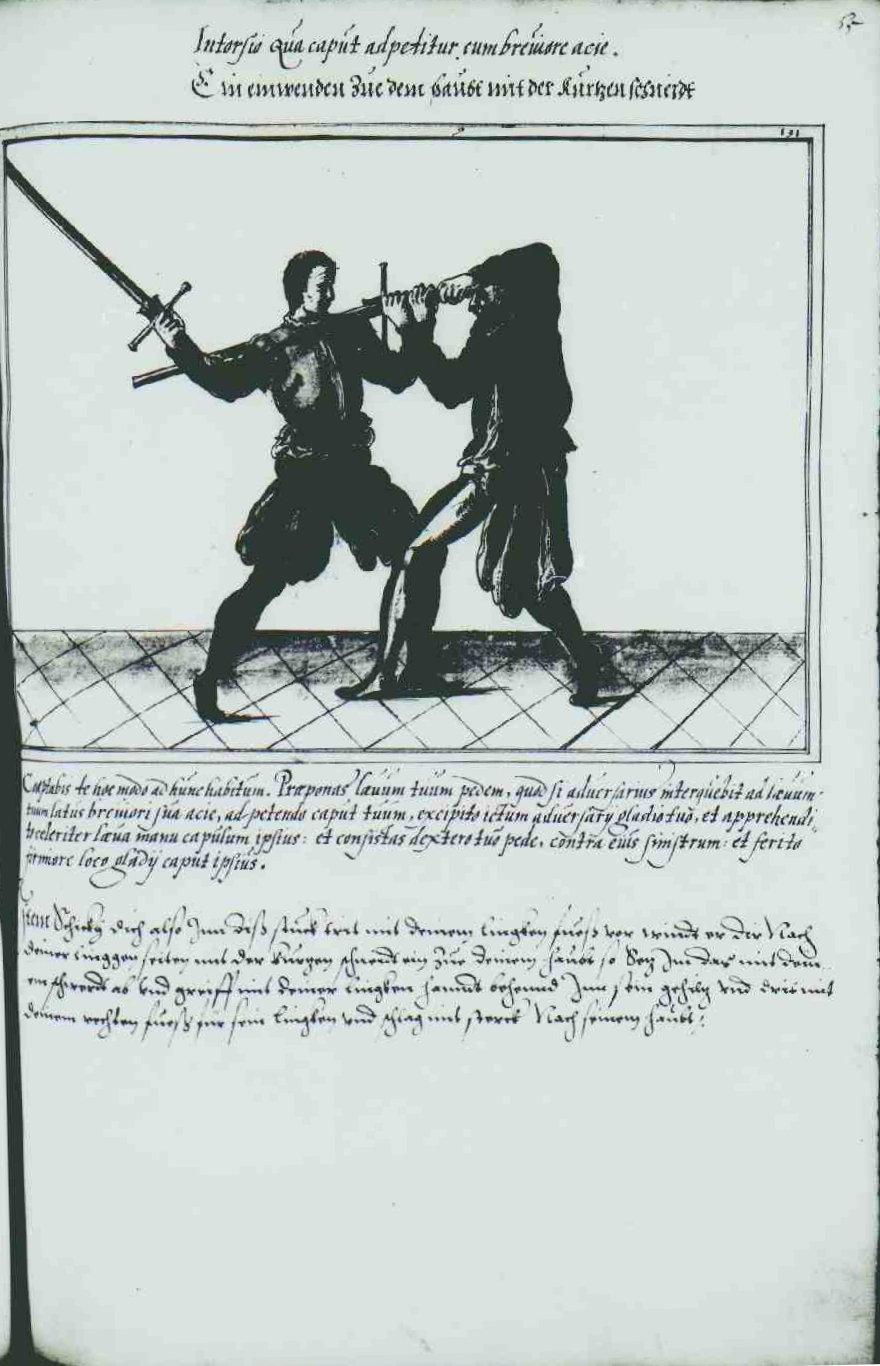 52
Intorsio Qua caput adpetitur cum breuiore acie.
Ein einwenden Zue dem haubt mit der Kurtzen schneidt
131
Captabis te hoc modo ad hunc habitum. Præponas læuum tuum pedem, quod si aduersarius intorquebit ad læuum
tuum latus breuiori sua acie, adpetendo caput tuum, excipito ictum aduersarij gladio tuo, et apprehendi
to celeriter læua manu capulum ipsius: et consistas dextero tuo pede, contra eius sinistrum: et ferito
firmore loco gladij caput ipsius.
Item Schickh dich also Inn diß stuckh trit mit deinem linggken fuoß vor windt er dir Nach
deiner linggen seiten mit der kurzen schneidt ein Zue deinem haubt so Setz Im das mit dein
em schwerdt ab vnd greiff mit deiner linggken handt behennd Inn sein gehiltz vnd drit mit
deinem rechten fuoß für sein lingken vnd schlag mit sterck Nach seinem haubt.